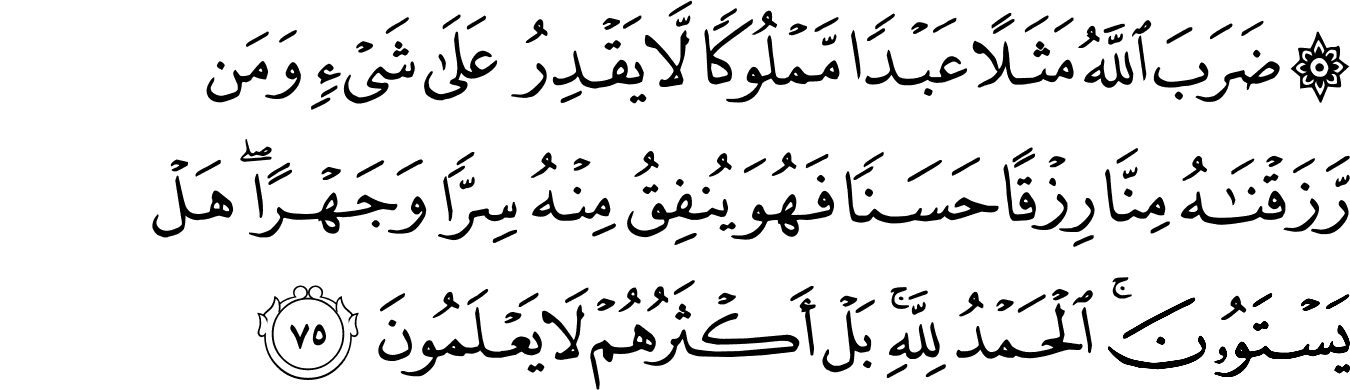 ۞ ضَرَبَ ٱللَّهُ مَثَلًا عَبْدًا مَّمْلُوكًا لَّا يَقْدِرُ عَلَىٰ شَىْءٍ وَمَن
رَّزَقْنَـٰهُ مِنَّا رِزْقًا حَسَنًا فَهُوَ يُنفِقُ مِنْهُ سِرًّا وَجَهْرًا ۖ هَلْ
يَسْتَوُۥنَ ۚ ٱلْحَمْدُ لِلَّهِ ۚ بَلْ أَكْثَرُهُمْ لَا يَعْلَمُونَ ٧٥